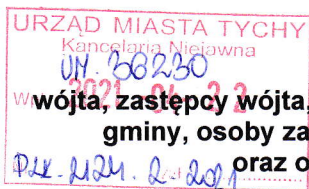 URZĄD MIASTA TYCHY
Kancelaria Niejawna
UM. 36230
2021
wójta, zastępcy wójta,
gminy, osoby za
oraz o